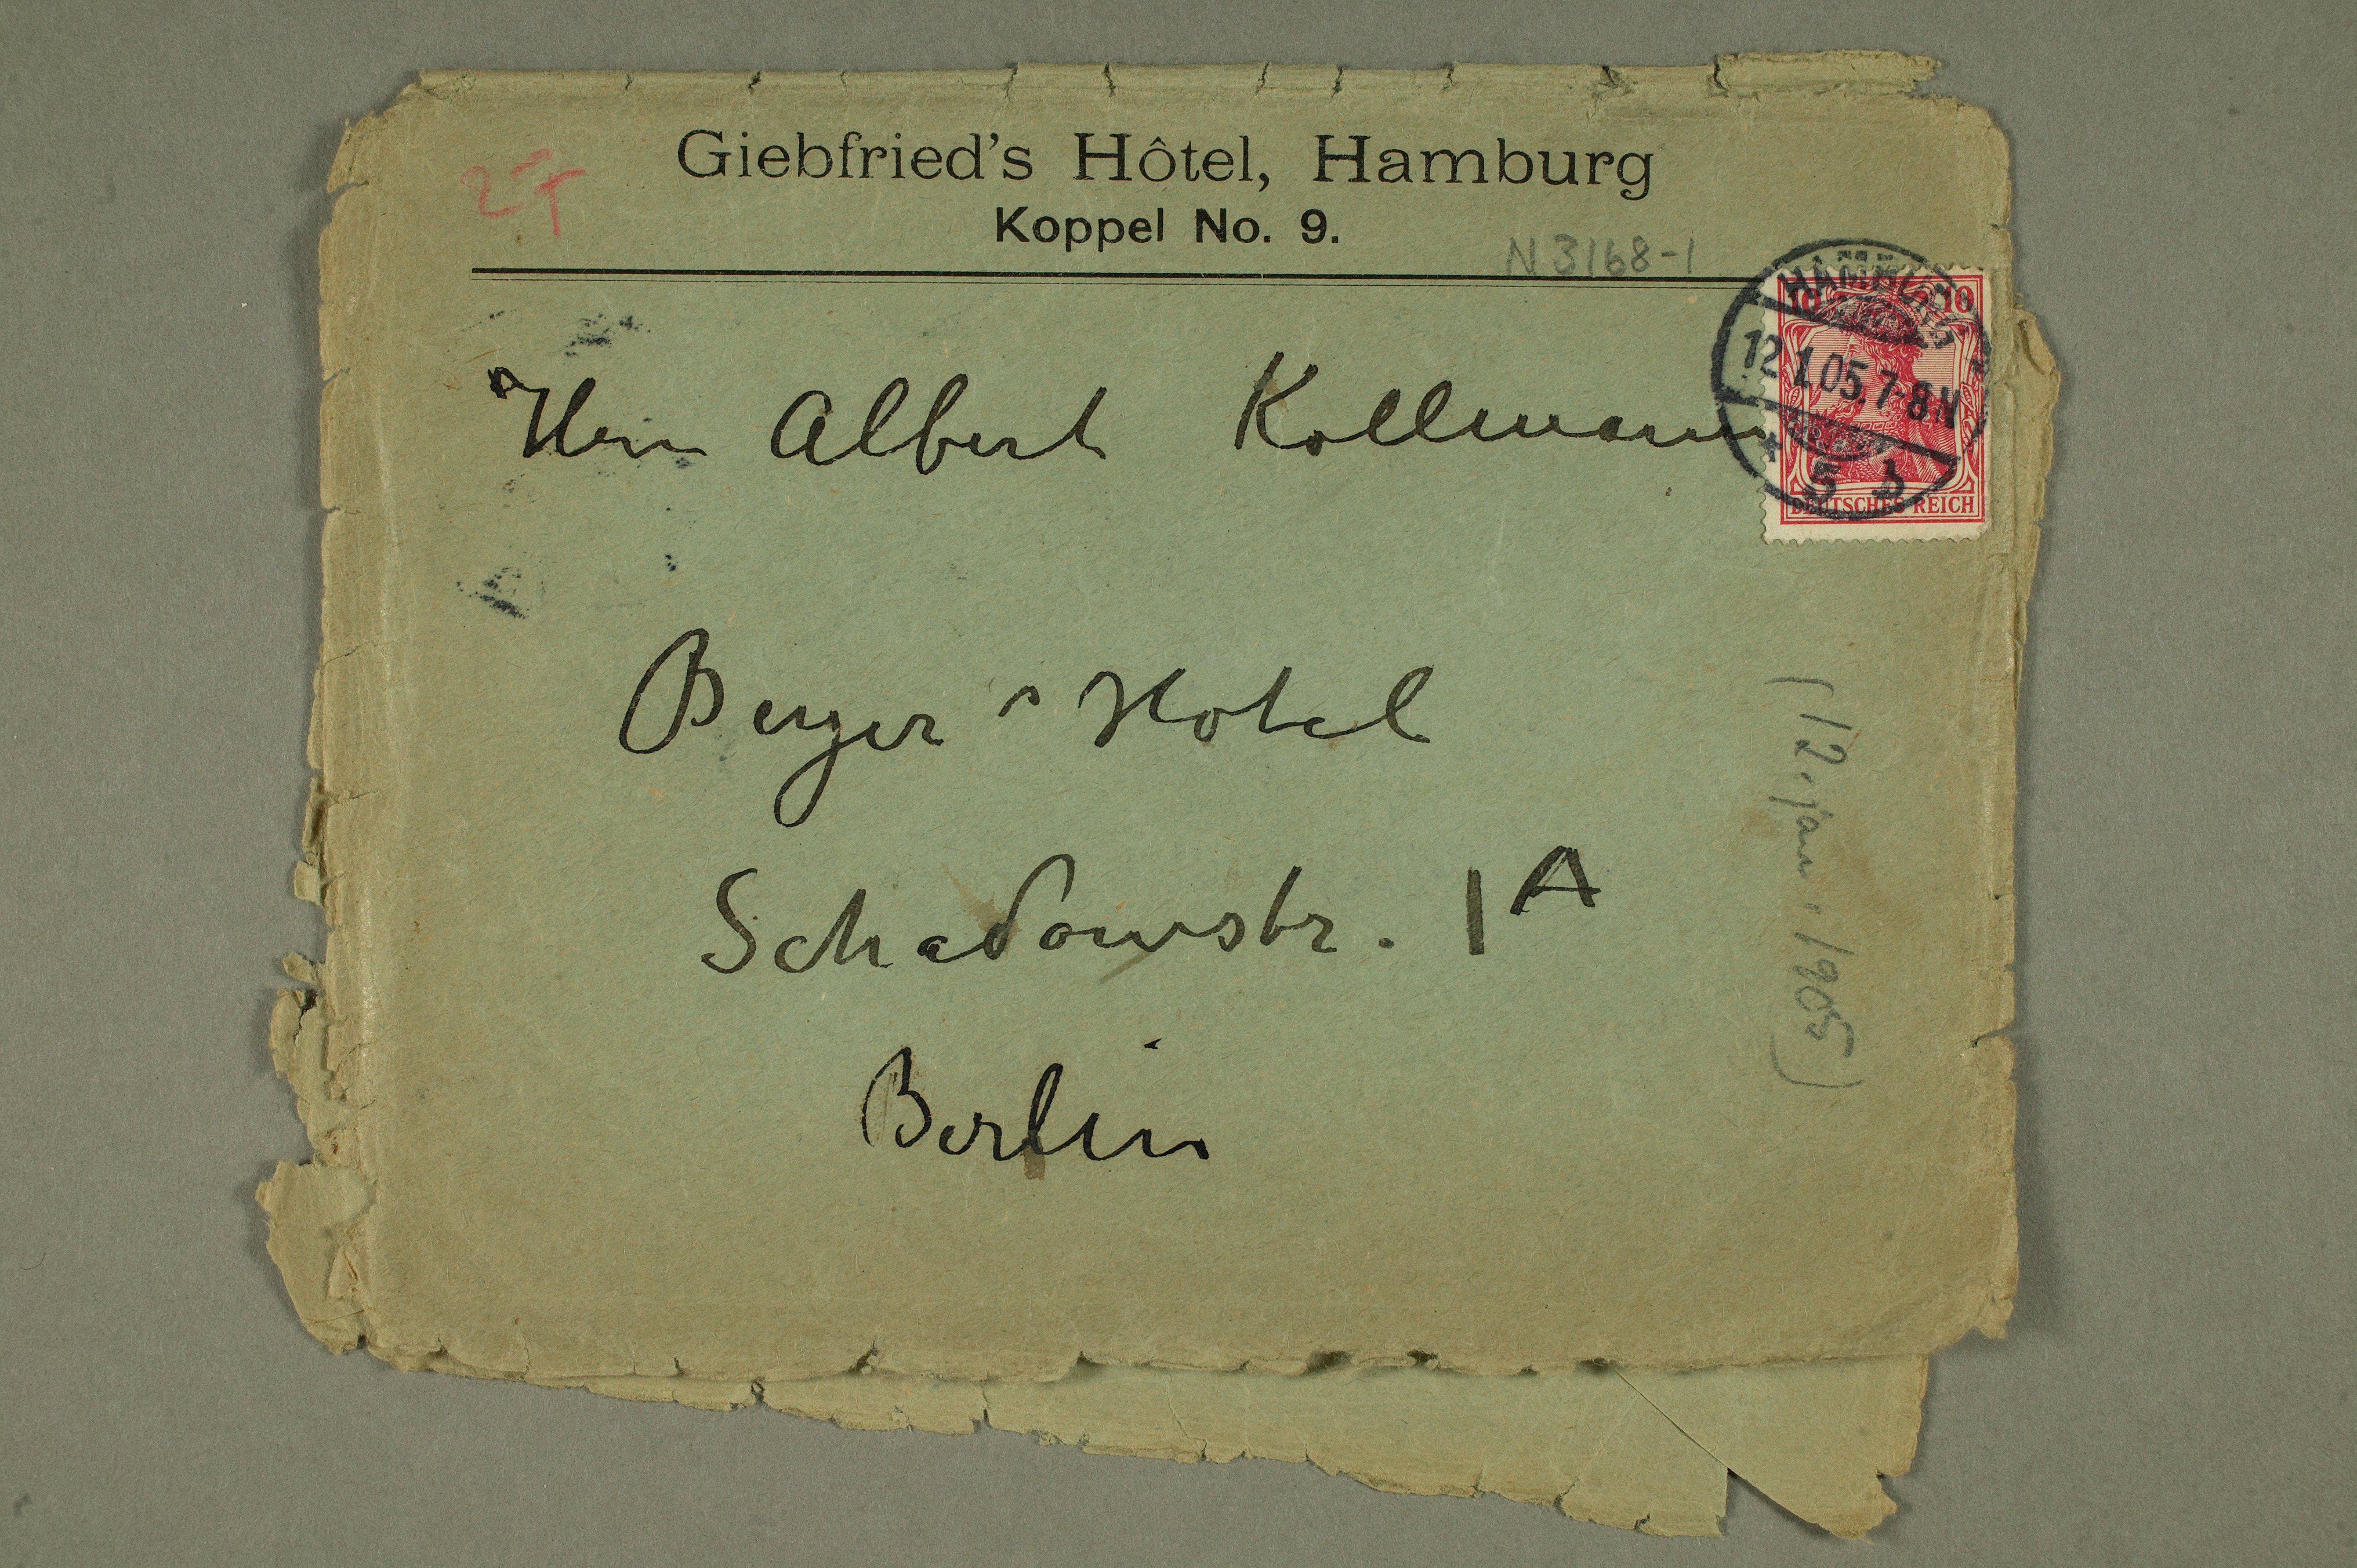 Giebfried's Hôtel, Hamburg
Koppel No. 9.
N 3168-1
HAMBURG
12.1.05.7-8N
* 5 b
10 10
DEUTSCHES REICH
Herrn Albert Kollmann
Berger's Hotel
Schadowstr. 1A
Berlin
(12. jan. 1905)